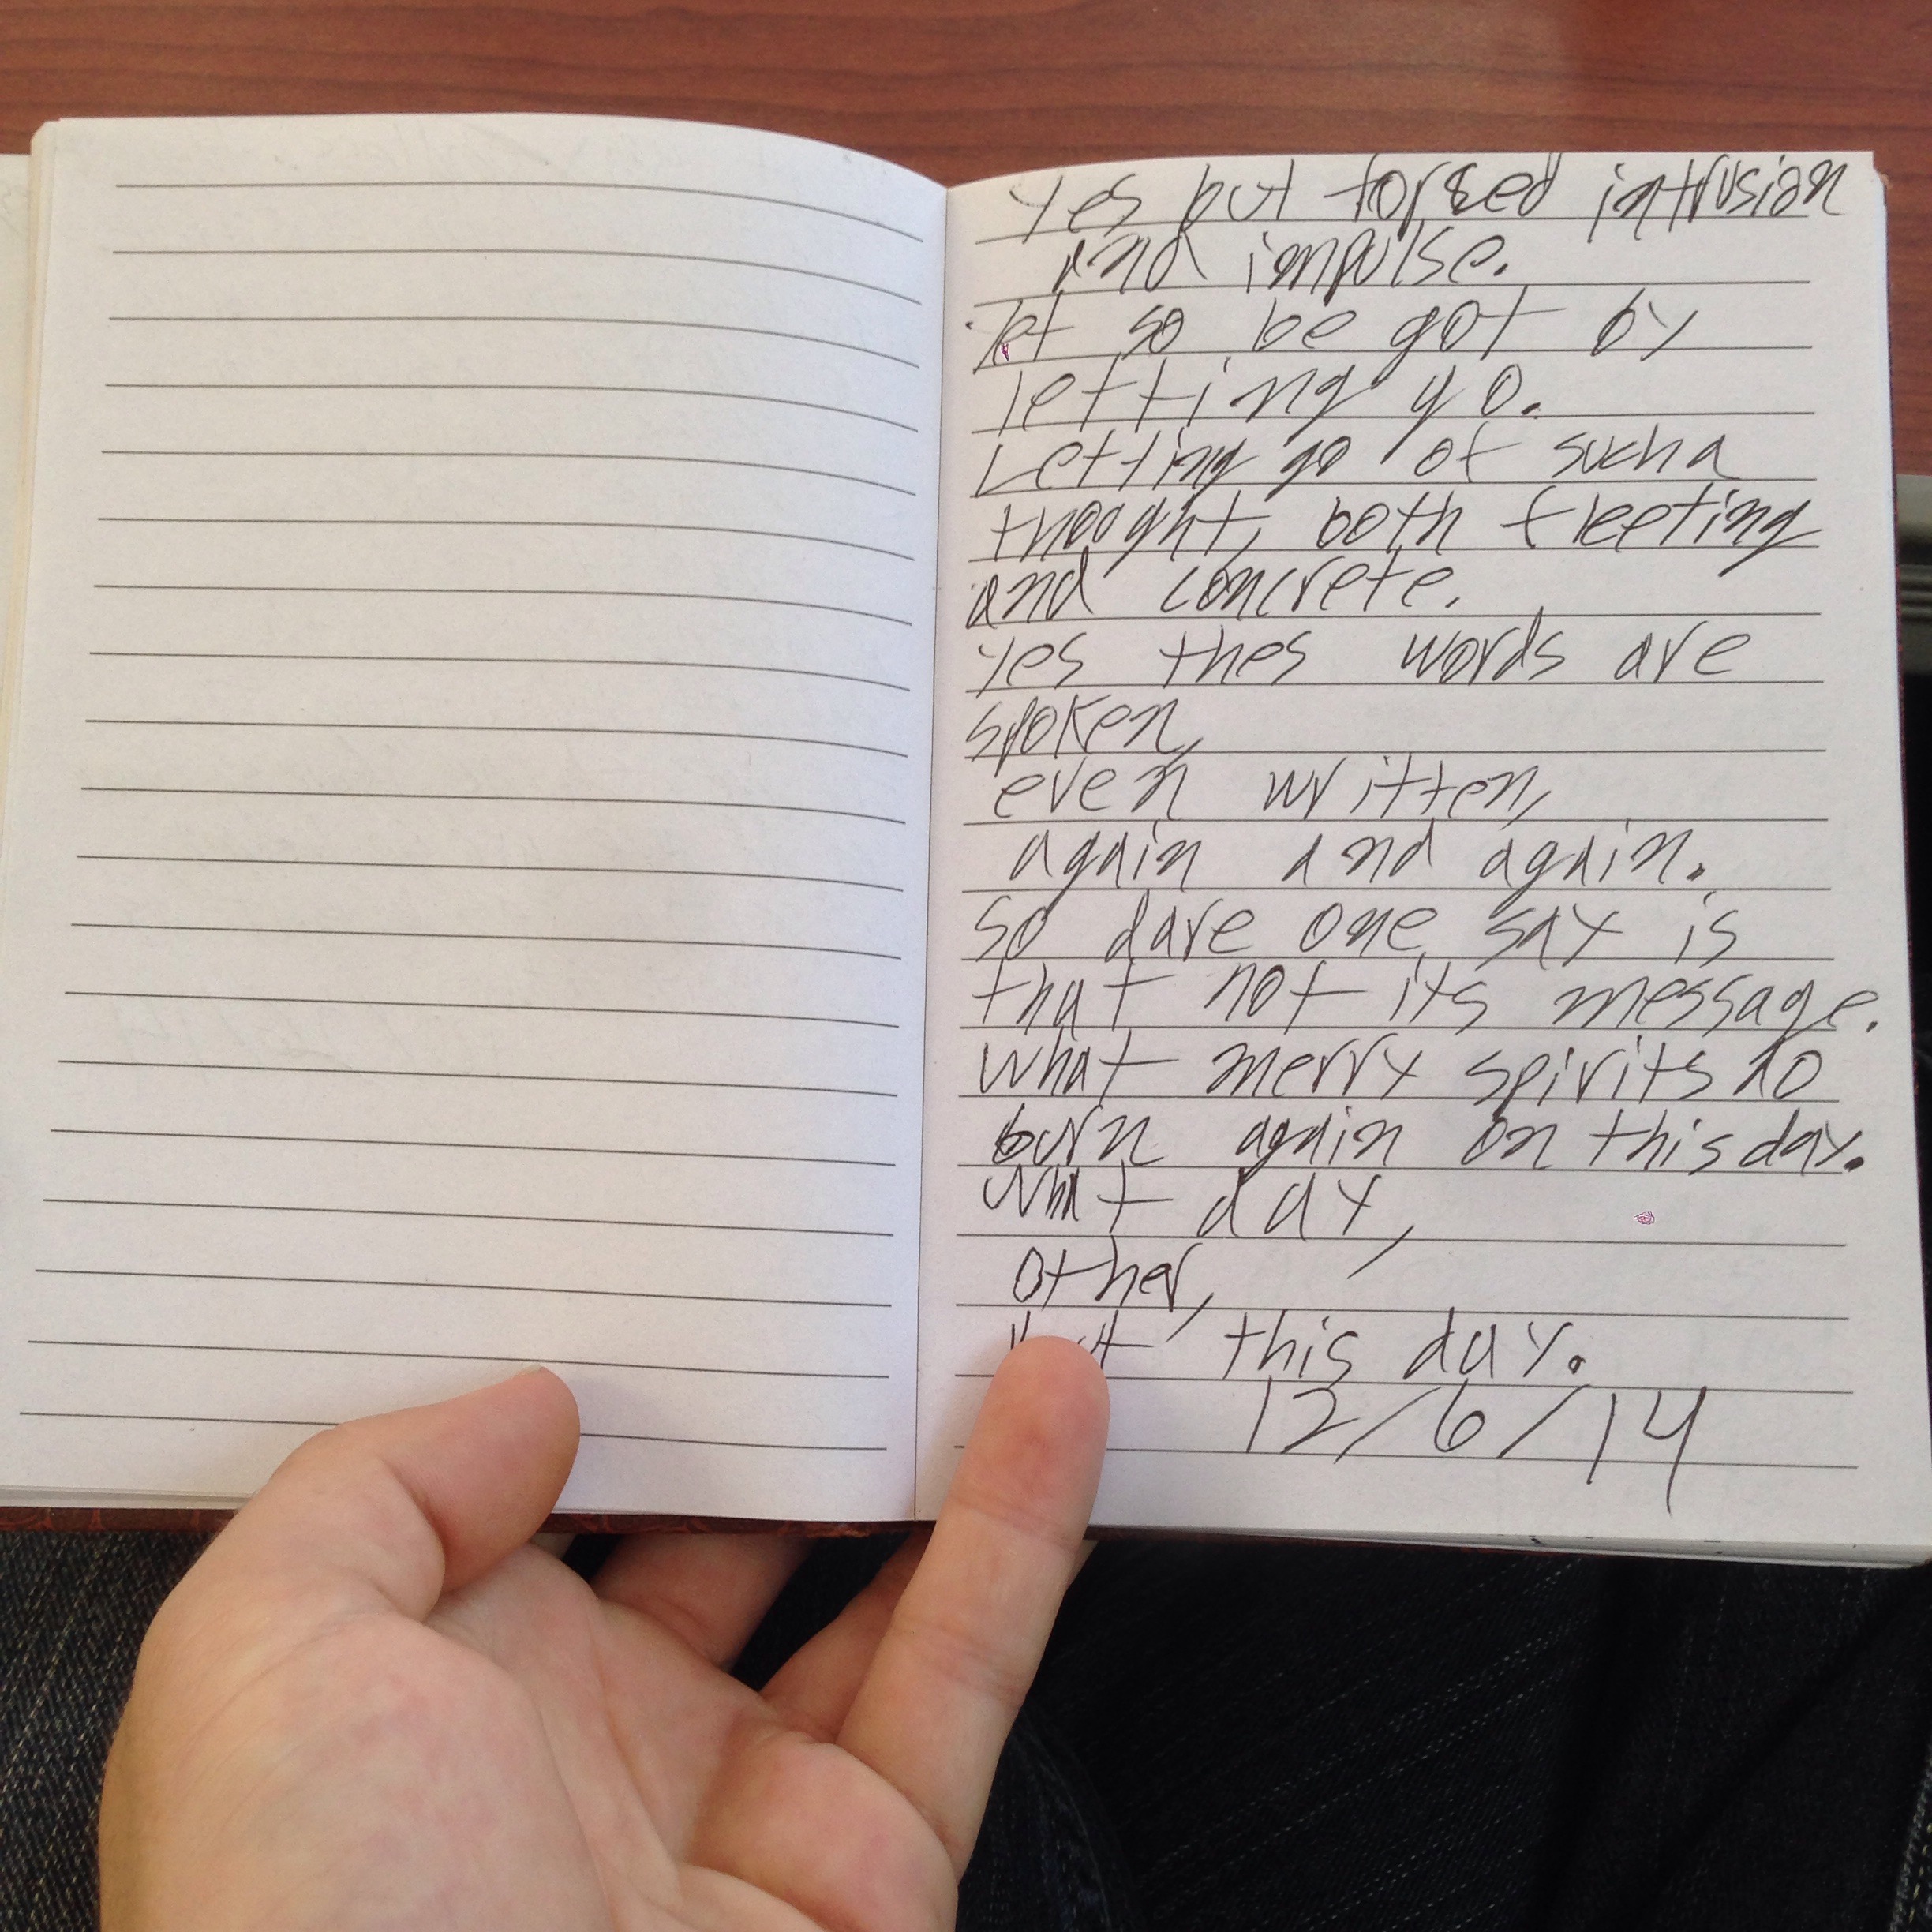 Yes but forced intrusion
and impulse.
Yet so be got by
letting go.
Letting go of such a
thought, both fleeting
and concrete.
Yes thes words are
spoken,
even written,
again and again.
So dare one say is
that not its message.
What merry spirits do
burn again on this day.
What day,
other,
this day.
12/6/14